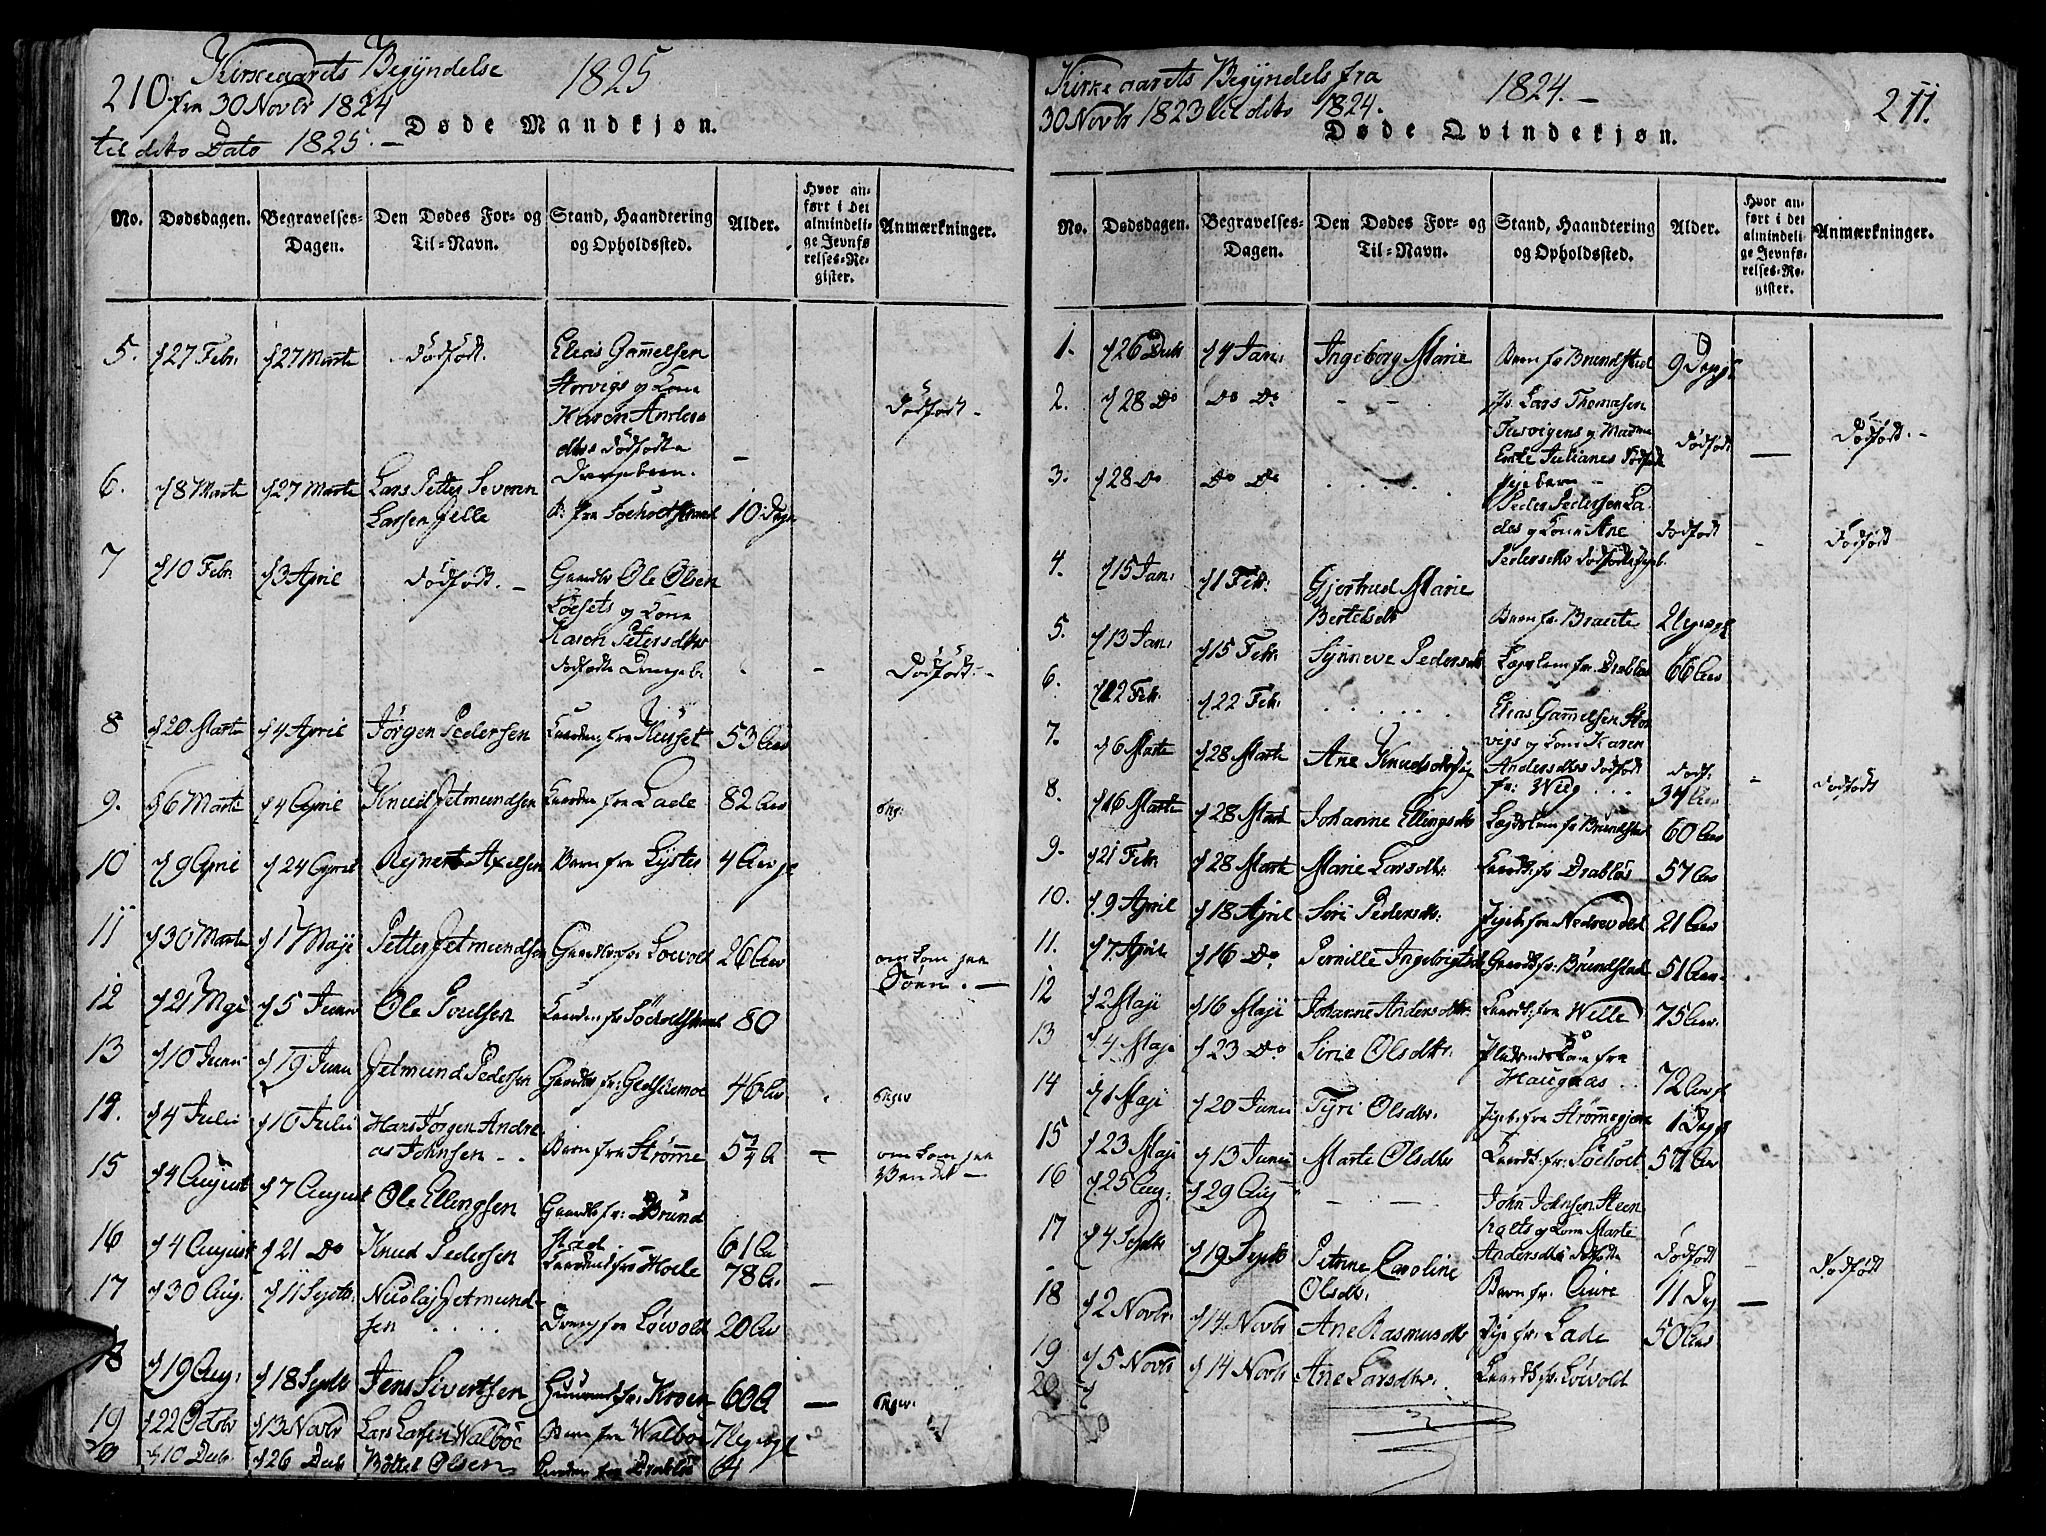 210.
Kirkeaarets Begÿndelse
fra 30 Novbr 1824
til dito Dato 1825. —
1825
Døde Mandkjøn.
No.
Dødsdagen.
Begravelses-Dagen.
Den Dødes For- og Til-Navn.
Stand, Haandtering og Opholdssted.
Alder.
Hvor anført i det almindelige Jevnførelses-Register.
Anmærkninger.
5. 27 Febr. 27 Marti Dødfødt. Elias Gam̄elsen
Storvigs og Kone
Karen Anders
dtrs dødfødte
Drengebarn. — Dødfødt. -
6. 8 Marti 27 Marti Lars Petter Severin
Larsen Jelle B. fra Søeholtstrand 10 Dage
7 10 Febr. 3 April Dødfødt. — Gaardbr Ole Olsen
Løesets og Kone
Karen Petersdtrs
dødfødte Drengeb. - Dødfødt. -
8 20 Marti 4 April Jörgen Pedersen fra 53 Aar
9. 6 Marti 4 April Knud Jetmundsen fra Lade 82 Aar
10 9 April 24 April Rejnert Axelsen Barn fra Lyster 4 Aar
11 30 Marti 1 Maji Petter Jetmundsen Gaardbr fr. Løwold 26 Aar omkom paa
Søen. —
12 21 Maji 5 Junii Ole Poulsen fr Søholtstrand 80
13 10 Junii 19 Junii Jetmund Pedersen Gaardbr fr: 46 Aar
14. 4 Julii 10 Julii Hans Jörgen Andre
as Johnsen - . Barn fra Strømme 5¼ A — omkom paa
Vandet —
15 4 August 7 August Ole Ellingsen Gaardbr fr: Bründ
stad 61 A
16 4 August 21 Do Knud Pedersen fra Hole 78 A. —
17 30 Aug. 11 Septbr. Nicolaj Jetmund-
sen Dreng fra Løwold 20 Aar
18 19 Aug. 18 Septbr Jens Sivertsen 60 A —
19 22 Octobr 13 Novbr Lars Larsen Walböe Barn fra Walbøe
20 10 Decb 26 Decb Olsen fra Drabløs 64
Kirkeaarets Begÿndels fra
30 Novbr 1823 til dito 1824.
1824. —
211.
Døde Qvindekjøn.
No.
Dødsdagen.
Begravelses-Dagen.
Den Dødes For- og Til-Navn.
Stand, Haandtering og Opholdssted.
Alder.
Hvor anført i det almindelige Jevnførelses-Register.
Anmærkninger.
1. 26 Decbr 4 Jan: Ingeborg Marie Barn fr Brundstad 9 Dage
2. 28 Do Do Do — — Lars Thomasen
og Madme
Julianes dødfødte
Pigebarn — Dødfødt — Dødfødt. -
3. 28 Do Do Do . . . . . Peder Pedersen La
des og Kone Ane
Pedersdtrs dødfødte Pigeb. Dødfødt - Dødfødt
4. 15 Jan: 1 Febr. Gjertrud Marie
Bertelsdtr Barn fr. Braute
5. 13 Jan: 15 Febr. Sÿnneve Pedersdtr fr. Drabløs 66 Aar
6. 12 Febr. 22 Febr. . . . . . Elias Gam̄elsen Stor
vigs og Kone Karen
Andersdtrs dødfødt Dødf. - Dødfødt
7. 6 Marti 28 Marti Ane Knudsdtr fr: Wiig . . 34 Aar
8. 16 Marti 28 Marti Johanne Ellingsdtr fr Brundstad 60 Aar
9. 21 Febr. 28 Marti Marie Larsdtr. fr Drabløs 57 Aar
10. 9 April 18 April Siri Pedersdtr. Pigeb. fra 21 Aar
11. 7 April 16 Do Pernille Ingebrigtsd Gaardk fr: Bründstad 51 Aar.
12 2 Maji 16 Maji Johanne Andersdtr. fra Welle 75 Aar.
13 4 Maji 23 Do Sirie Olsdtr. fra
Haugnæs . . 72 Aar
14 1 Maji 20 Junii Tyri Olsdtr. Pigeb. fra 1 Dag
15 23 Maji 13 Junii Marte Olsdtr fr: Søeholt 57 Aar
16 25 Aug: 29 Aug — — John Johnsen Steen
og Kone Marte
Andersdtrs dødfødte Dødfødt - Dødfødt
17 4 Septbr 19 Septbr Petrine Caroline
Olsdtr. Barn fr. Aure 11 Dag —
18 2 Novbr. 14 Novbr Ane Rasmusdtr fr: Lade 50 Aar
19 5 Novbr 14 Novbr Ane Larsdtr. fr. Løwold
20